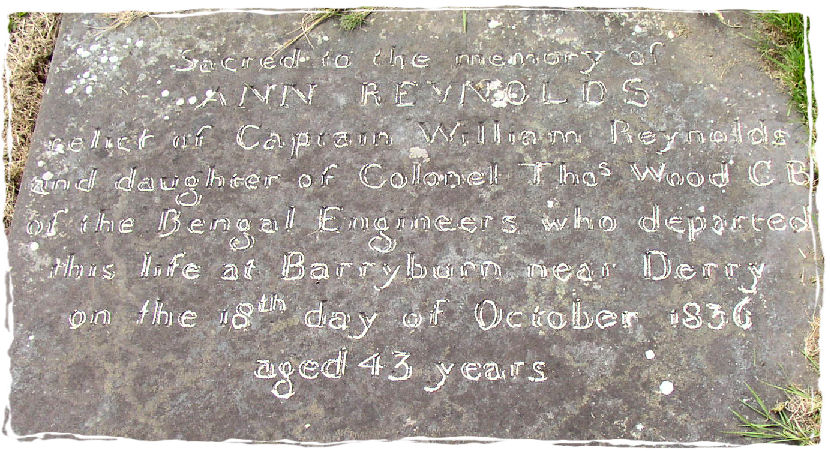 Sacred to the memory of
ANN REYNOLDS
relict of Captain William Reynolds
and daughter of Colonel Thos Wood C B
of the Bengal Engineers who departed
this life at Barryburn near Derry
on the 18th day of October 1836
aged 43 years